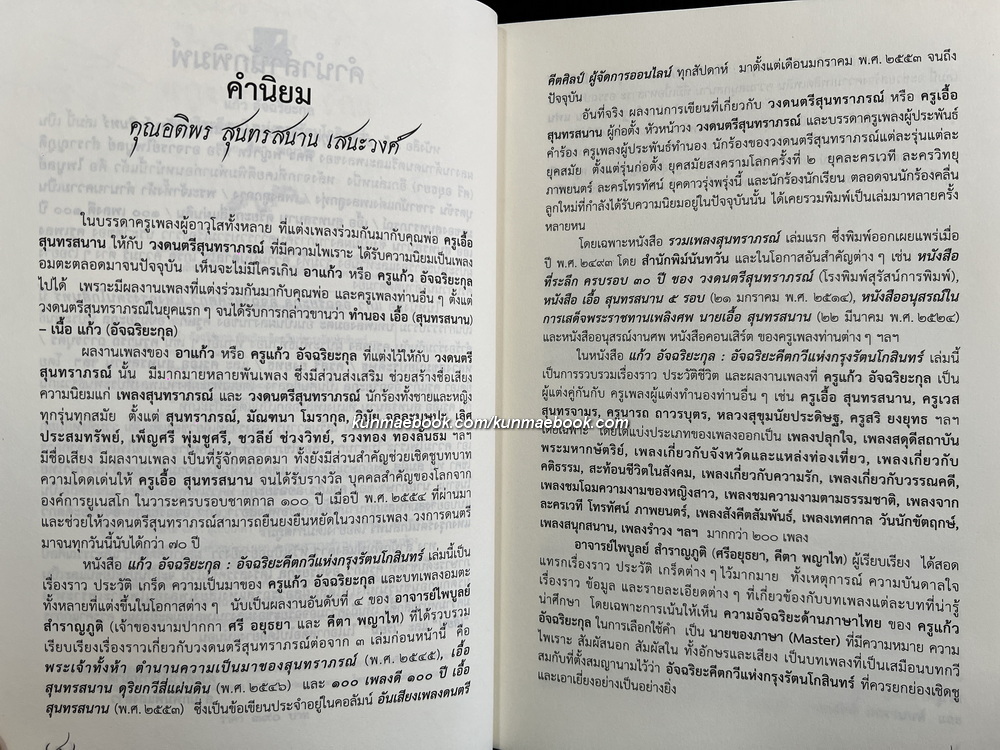 คำนิยม
คุณอดิพร สุนทรสนาน เสนะวงศ์
ในบรรดาครูเพลงผู้อาวุโสทั้งหลาย ที่แต่งเพลงร่วมกันมากับคุณพ่อ ครูเอื้อ
สุนทรสนาน ให้กับ วงดนตรีสุนทราภรณ์ ที่มีความไพเราะ ได้รับความนิยมเป็นเพลง
อมตะตลอดมาจนปัจจุบัน เห็นจะไม่มีใครเกิน อาแก้ว หรือ ครูแก้ว อัจฉริยะกุล
ไปได้ เพราะมีผลงานเพลงที่แต่งร่วมกันมากับคุณพ่อ และครูเพลงท่านอื่น ๆ ตั้งแต่
วงดนตรีสุนทราภรณ์ในยุคแรก ๆ จนได้รับการกล่าวขานว่า ทำนอง เอื้อ (สุนทรสนาน)
– เนื้อ แก้ว (อัจฉริยะกุล)
ผลงานเพลงของ อาแก้ว หรือ ครูแก้ว อัจฉริยะกุล ที่แต่งไว้ให้กับ วงดนตรี
สุนทราภรณ์ นั้น มีมากมายหลายพันเพลง ซึ่งมีส่วนส่งเสริม ช่วยสร้างชื่อเสียง
ความนิยมแก่ เพลงสุนทราภรณ์ และ วงดนตรีสุนทราภรณ์ นักร้องทั้งชายและหญิง
ทุกรุ่นทุกสมัย ตั้งแต่ สุนทราภรณ์, มัณฑนา โมรากุล, เลิศ
ประสมทรัพย์, เพ็ญศรี พุ่มชูศรี, ชวลีย์ ช่วงวิทย์, รวงทอง ทองลั่นธม ฯลฯ
มีชื่อเสียง มีผลงานเพลง เป็นที่รู้จักตลอดมา ทั้งยังมีส่วนสำคัญช่วยเชิดชูบทบาท
ความโดดเด่นให้ ครูเอื้อ สุนทรสนาน จนได้รับรางวัล บุคคลสำคัญของโลกจาก
องค์การยูเนสโก ในวาระครบรอบชาตกาล ๑๐๐ ปี เมื่อปี พ.ศ. ๒๕๕๔ ที่ผ่านมา
และช่วยให้วงดนตรีสุนทราภรณ์สามารถยืนยงยืนหยัดในวงการเพลง วงการดนตรี
มาจนทุกวันนี้นับได้กว่า ๗๐ ปี
หนังสือ แก้ว อัจฉริยะกุล : อัจฉริยะคีตกวีแห่งกรุงรัตนโกสินทร์ เล่มนี้เป็น
เรื่องราว ประวัติ เกร็ด ความเป็นมาของ ครูแก้ว อัจฉริยะกุล และบทเพลงอมตะ
ทั้งหลายที่แต่งขึ้นในโอกาสต่าง ๆ นับเป็นผลงานอันดับที่ ๔ ของ อาจารย์ไพบูลย์
สำราญภูติ (เจ้าของนามปากกา ศรี อยุธยา และ คีตา พญาไท) ที่ได้รวบรวม
เรียบเรียงเรื่องราวเกี่ยวกับวงดนตรีสุนทราภรณ์ต่อจาก ๓ เล่มก่อนหน้านี้ คือ
พระเจ้าทั้งห้า ตำนานความเป็นมาของสุนทราภรณ์ (พ.ศ. ๒๕๔๕), เอื้อ
สุนทรสนาน ดุริยกวีสี่แผ่นดิน (พ.ศ. ๒๕๔๖) และ ๑๐๐ เพลงดี ๑๐๐ ปี เอื้อ
สุนทรสนาน (พ.ศ. ๒๕๕๓) ซึ่งเป็นข้อเขียนประจำอยู่ในคอลัมน์ อันเสียงเพลงดนตรี
คีตศิลป์ ผู้จัดการออนไลน์ ทุกสัปดาห์ มาตั้งแต่เดือนมกราคม พ.ศ. ๒๕๕๓ จนถึง
ปัจจุบัน
อันที่จริง ผลงานการเขียนที่เกี่ยวกับ วงดนตรีสุนทราภรณ์ หรือ ครูเอื้อ
สุนทรสนาน ผู้ก่อตั้ง หัวหน้าวง วงดนตรีสุนทราภรณ์ และบรรดาครูเพลงผู้ประพันธ์
คำร้อง ครูเพลงผู้ประพันธ์ทำนอง นักร้องของวงดนตรีสุนทราภรณ์แต่ละรุ่นแต่ละ
ยุคสมัย ตั้งแต่รุ่นก่อตั้ง ยุคสมัยสงครามโลกครั้งที่ ๒ ยุคละครเวที ละครวิทยุ
ภาพยนตร์ ละครโทรทัศน์ ยุคดาวรุ่งพรุ่งนี้ และนักร้องนักเรียน ตลอดจนนักร้องคลื่น
ลูกใหม่ที่กำลังได้รับความนิยมอยู่ในปัจจุบันนั้น ได้เคยรวมพิมพ์เป็นเล่มมาหลายครั้ง
หลายหน
โดยเฉพาะหนังสือ รวมเพลงสุนทราภรณ์ เล่มแรก ซึ่งพิมพ์ออกเผยแพร่เมื่อ
ปี พ.ศ. ๒๔๙๓ โดย สำนักพิมพ์นันทวัน และในโอกาสอันสำคัญต่าง ๆ เช่น หนังสือ
ที่ระลึก ครบรอบ ๓๐ ปี ของ วงดนตรีสุนทราภรณ์ (โรงพิมพ์สุรัสน์การพิมพ์),
หนังสือ เอื้อ สุนทรสนาน ๕ รอบ (๒๑ มกราคม พ.ศ. ๒๕๑๔), หนังสืออนุสรณ์ใน
การเสด็จพระราชทานเพลิงศพ นายเอื้อ สุนทรสนาน (๒๒ มีนาคม พ.ศ. ๒๕๒๔)
และหนังสืออนุสรณ์งานศพ หนังสือคอนเสิร์ต ของครูเพลงท่านต่าง ๆ ฯลฯ
ในหนังสือ แก้ว อัจฉริยะกุล : อัจฉริยะคีตกวีแห่งกรุงรัตนโกสินทร์ เล่มนี้
เป็นการรวบรวมเรื่องราว ประวัติชีวิต และผลงานเพลงที่ ครูแก้ว อัจฉริยะกุล เป็น
ผู้แต่งคู่กันกับ ครูเพลงผู้แต่งทำนองท่านอื่น ๆ เช่น ครูเอื้อ สุนทรสนาน, ครูเวส
สุนทรจามร, ครูนารถ ถาวรบุตร, หลวงสุขุมนัยประดิษฐ, ครูสริ ยงยุทธ ฯลฯ
โดยเฉพาะ โดยได้แบ่งประเภทของเพลงออกเป็น เพลงปลุกใจ, เพลงสดุดีสถาบัน
พระมหากษัตริย์, เพลงเกี่ยวกับจังหวัดและแหล่งท่องเที่ยว, เพลงเกี่ยวกับ
คติธรรม, สะท้อนชีวิตในสังคม, เพลงเกี่ยวกับความรัก, เพลงเกี่ยวกับวรรณคดี,
เพลงชมโฉมความงามของหญิงสาว, เพลงชมความงามตามธรรมชาติ, เพลงจาก
ละครเวที โทรทัศน์ ภาพยนตร์, เพลงสังคีตสัมพันธ์, เพลงเทศกาล วันนักขัตฤกษ์,
เพลงสนุกสนาน, เพลงรำวง ฯลฯ มากกว่า ๒๐๐ เพลง
อาจารย์ไพบูลย์ สำราญภูติ (ศรีอยุธยา, คีตา พญาไท) ผู้เรียบเรียง ได้สอด
แทรกเรื่องราว ประวัติ เกร็ดต่าง ๆ ไว้มากมาย ทั้งเหตุการณ์ ความบันดาลใจ
เรื่องราว ข้อมูล และรายละเอียดต่าง ๆ ที่เกี่ยวข้องกับบทเพลงแต่ละบทที่น่ารู้
น่าศึกษา โดยเฉพาะการเน้นให้เห็น ความอัจฉริยะด้านภาษาไทย ของ ครูแก้ว
อัจฉริยะกุล ในการเลือกใช้คำ เป็น นายของภาษา (Master) ที่มีความหมาย ความ
ไพเราะ สัมผัสนอก สัมผัสใน ทั้งอักษรและเสียง เป็นบทเพลงที่เป็นเสมือนบทกวี
สมกับที่ตั้งสมญานามไว้ว่า อัจฉริยะคีตกวีแห่งกรุงรัตนโกสินทร์ ที่ควรยกย่องเชิดชู
และเอาเยี่ยงอย่างเป็นอย่างยิ่ง
kunmaebook.com/kunmaebook.com